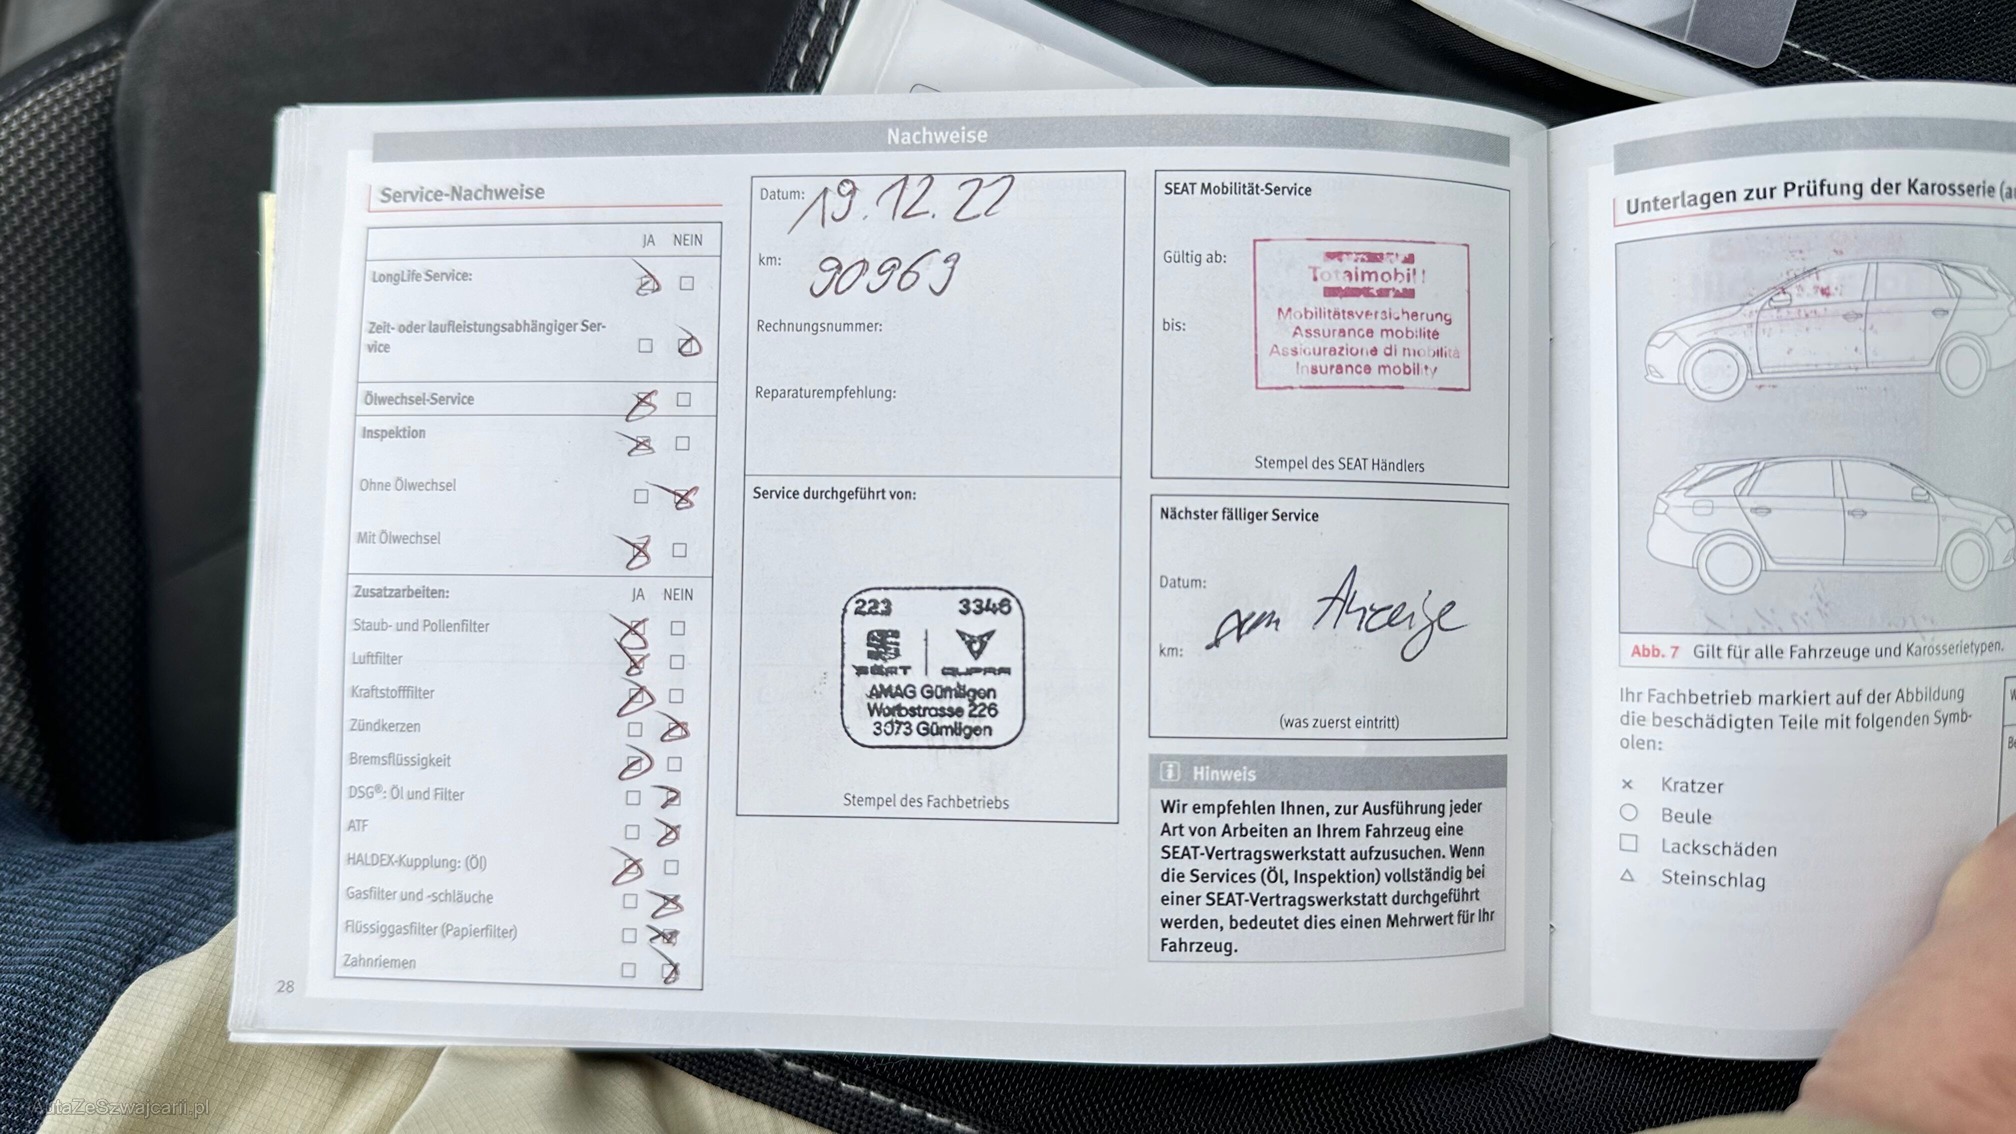 Nachweise
Service-Nachweise
JA NEIN
LongLife Service:
Zeit- oder laufleistungsabhängiger Ser-
vice
Ölwechsel-Service
Inspektion
Ohne Ölwechsel
Mit Ölwechsel
Zusatzarbeiten: JA NEIN
Staub- und Pollenfilter
Luftfilter
Kraftstofffilter
Zündkerzen
Bremsflüssigkeit
DSG®: Öl und Filter
ATF
HALDEX-Kupplung: (Öl)
Gasfilter und -schläuche
Flüssiggasfilter (Papierfilter)
Zahnriemen
28
Datum: 19.12.22
km: 90969
Rechnungsnummer:
Reparaturempfehlung:
Service durchgeführt von:
223 3346
SEAT CUPRA
AMAG Gümligen
Worbstrasse 226
3073 Gümligen
Stempel des Fachbetriebs
SEAT Mobilität-Service
Gültig ab:
bis:
Totalmobil!
Mobilitätsversicherung
Assurance mobilité
Assicurazione di mobilità
Insurance mobility
Stempel des SEAT Händlers
Nächster fälliger Service
Datum:
km:
Anzeige
(was zuerst eintritt)
Hinweis
Wir empfehlen Ihnen, zur Ausführung jeder
Art von Arbeiten an Ihrem Fahrzeug eine
SEAT-Vertragswerkstatt aufzusuchen. Wenn
die Services (Öl, Inspektion) vollständig bei
einer SEAT-Vertragswerkstatt durchgeführt
werden, bedeutet dies einen Mehrwert für Ihr
Fahrzeug.
Unterlagen zur Prüfung der Karosserie
Abb. 7 Gilt für alle Fahrzeuge und Karosserietypen.
Ihr Fachbetrieb markiert auf der Abbildung
die beschädigten Teile mit folgenden Symb-
olen:
× Kratzer
○ Beule
□ Lackschäden
△ Steinschlag
AutaZeSzwajcarii.pl